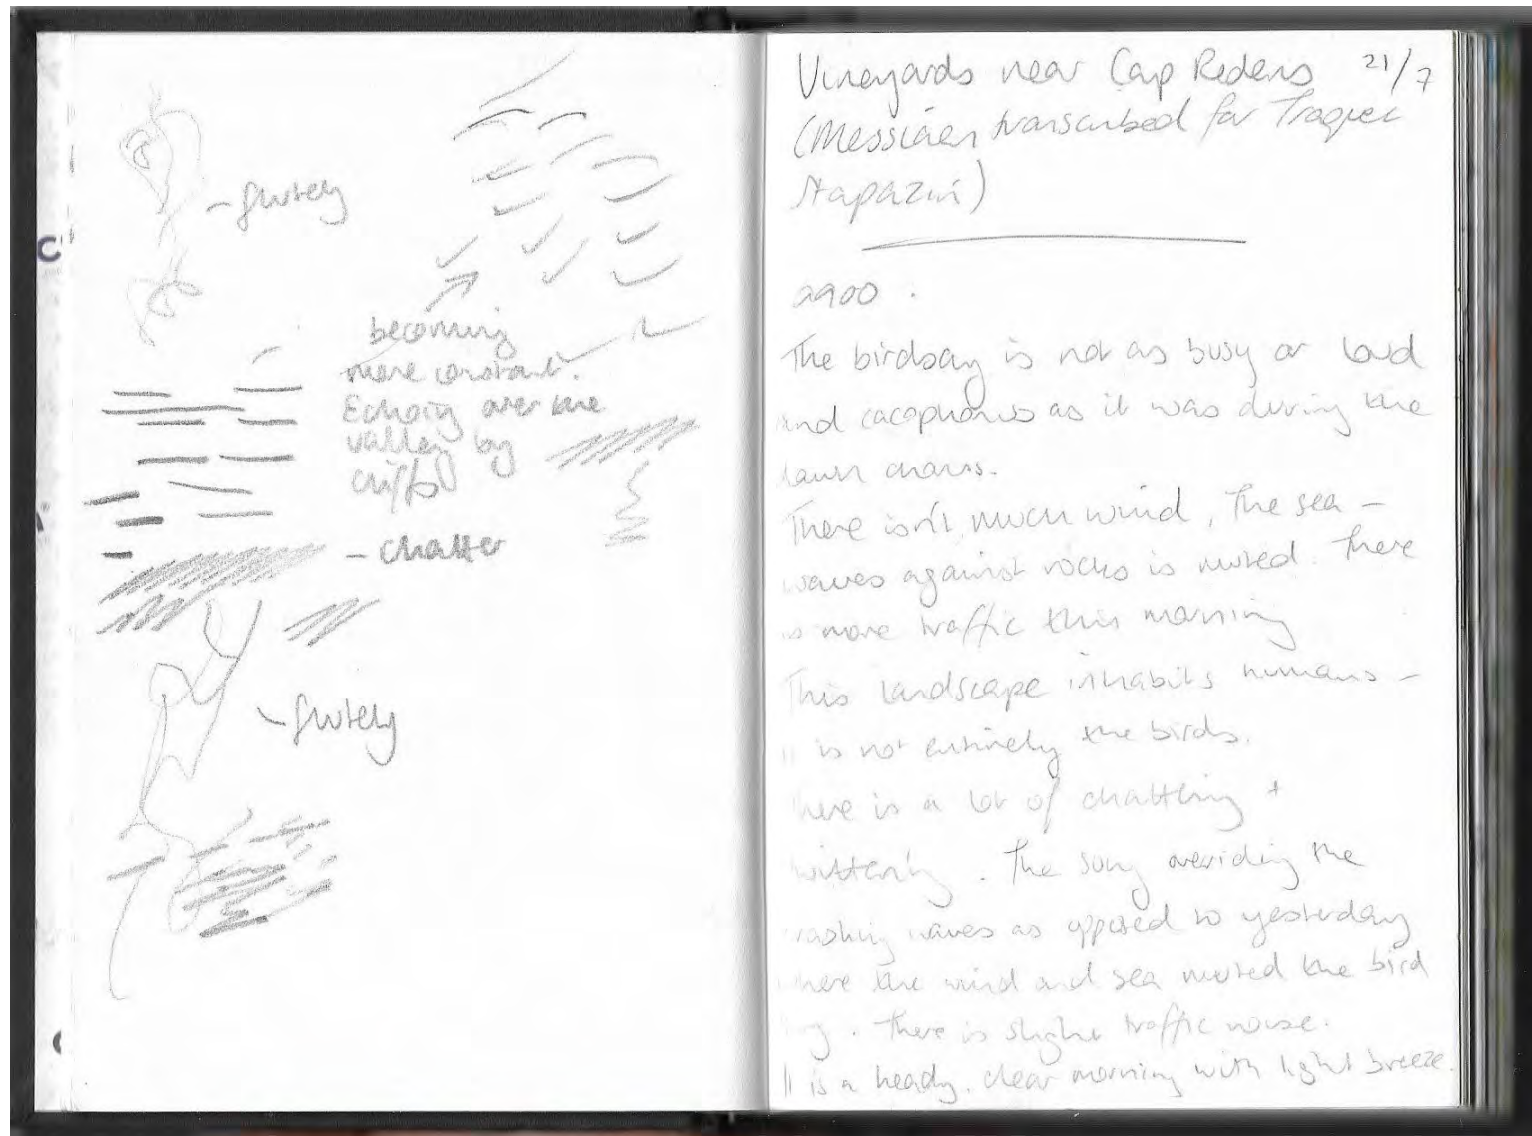 - flutely
becoming
more constant.
Echoing over the
valley by
cliffs
- chatter
- flutely
Vineyards near Cap Redens 21/7
(Messiaen transcribed for Traquet
Stapazin)
0900.
The birdsong is not as busy or loud
and cacophonous as it was during the
dawn chorus.
There isn't much wind, The sea -
waves against rocks is muted. There
is more traffic this morning
This landscape inhabits humans -
It is not entirely the birds.
There is a lot of chattling +
twittering. The song overriding the
crashing waves as opposed to yesterday
where the wind and sea muted the bird
song. There is slight traffic noise.
It is a heady, clear morning with light breeze.